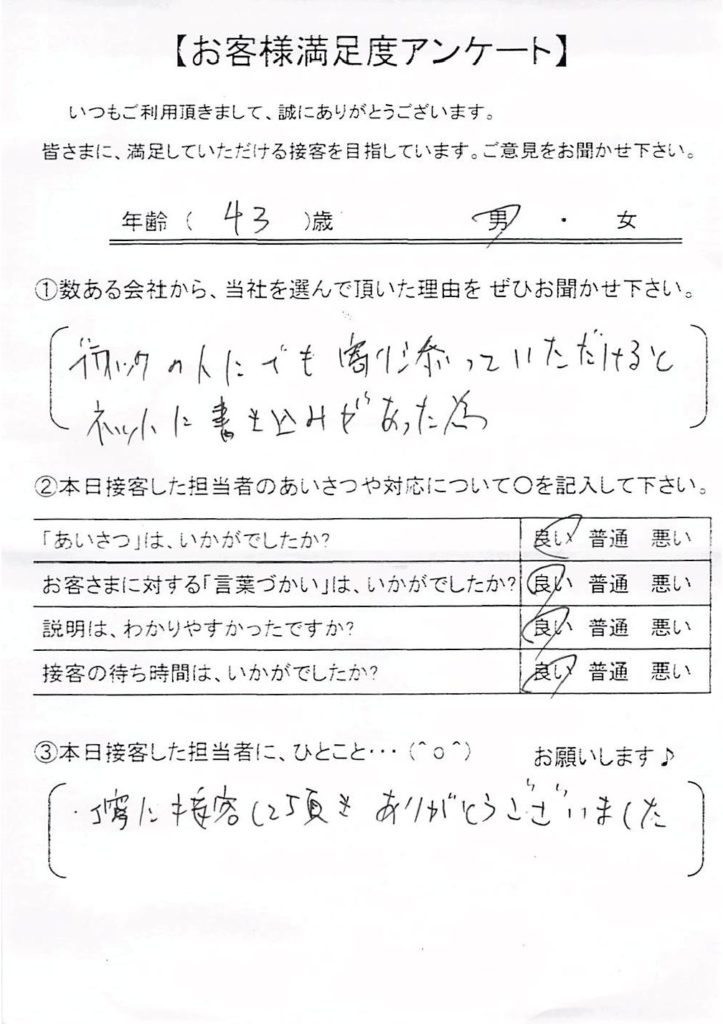 【お客様満足度アンケート】
いつもご利用頂きまして、誠にありがとうございます。
皆さまに、満足していただける接客を目指しています。ご意見をお聞かせ下さい。
年齢（ 43 ）歳 男 ・ 女
①数ある会社から、当社を選んで頂いた理由を ぜひお聞かせ下さい。
ブラックの人にでも寄り添っていただけると
ネットに書き込みがあった為
②本日接客した担当者のあいさつや対応について〇を記入して下さい。
「あいさつ」は、いかがでしたか? 良い 普通 悪い
お客さまに対する「言葉づかい」は、いかがでしたか? 良い 普通 悪い
説明は、わかりやすかったですか? 良い 普通 悪い
接客の待ち時間は、いかがでしたか? 良い 普通 悪い
③本日接客した担当者に、ひとこと･･･（＾ｏ＾） お願いします♪
・丁寧に接客して頂き ありがとうございました